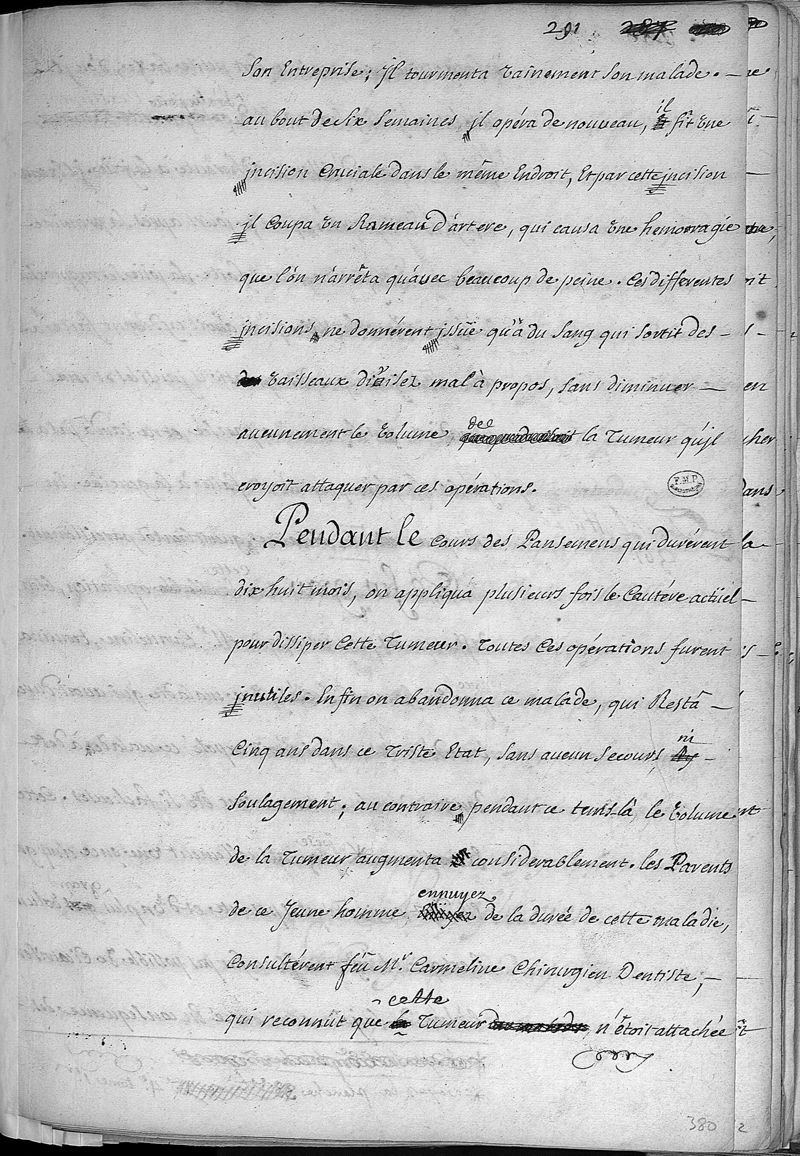 291 287
Son Entreprise; Il tourmenta vainement son malade. —
au bout de six semaines, jl opéra de nouveau, il fit une
jncision Cruciale dans le même Endroit, Et par cette jncision
jl coupa un Rameau d'artere, qui causa une hemorragie
que l'on n'arrêta qu'avec beaucoup de peine. Ces differentes
jncisions, ne donnérent jssüe qu'à du sang qui sortit des
vaisseaux divisez mal à propos, sans diminuer —
aucunement le volume de la Tumeur qu'jl
croyoit attaquer par ces opérations.
Pendant le cours des Pansemens qui durérent
dix huit mois, on appliqua plusieurs fois le Cautére actüel —
pour dissiper cette Tumeur. Toutes ces opérations furent
jnutiles. Enfin on abandonna ce malade, qui Resta —
Cinq ans dans ce Triste Etat, sans aucun secours, ni —
Soulagement; au contraire, pendant ce tems-là, le volume
de la Tumeur augmenta considerablement. les Parents
de ce Jeune homme, ennuyez de la durée de cette maladie,
Consultérent feu Mr. Carmeline Chirurgien Dentiste, —
qui reconnût que cette Tumeur n'étoit attachée
380
2